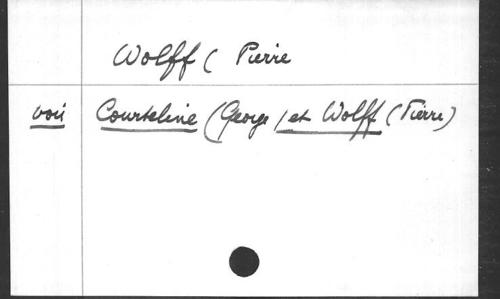 Wolff ( Pierre
voir Courteline (George) et Wolff (Pierre)